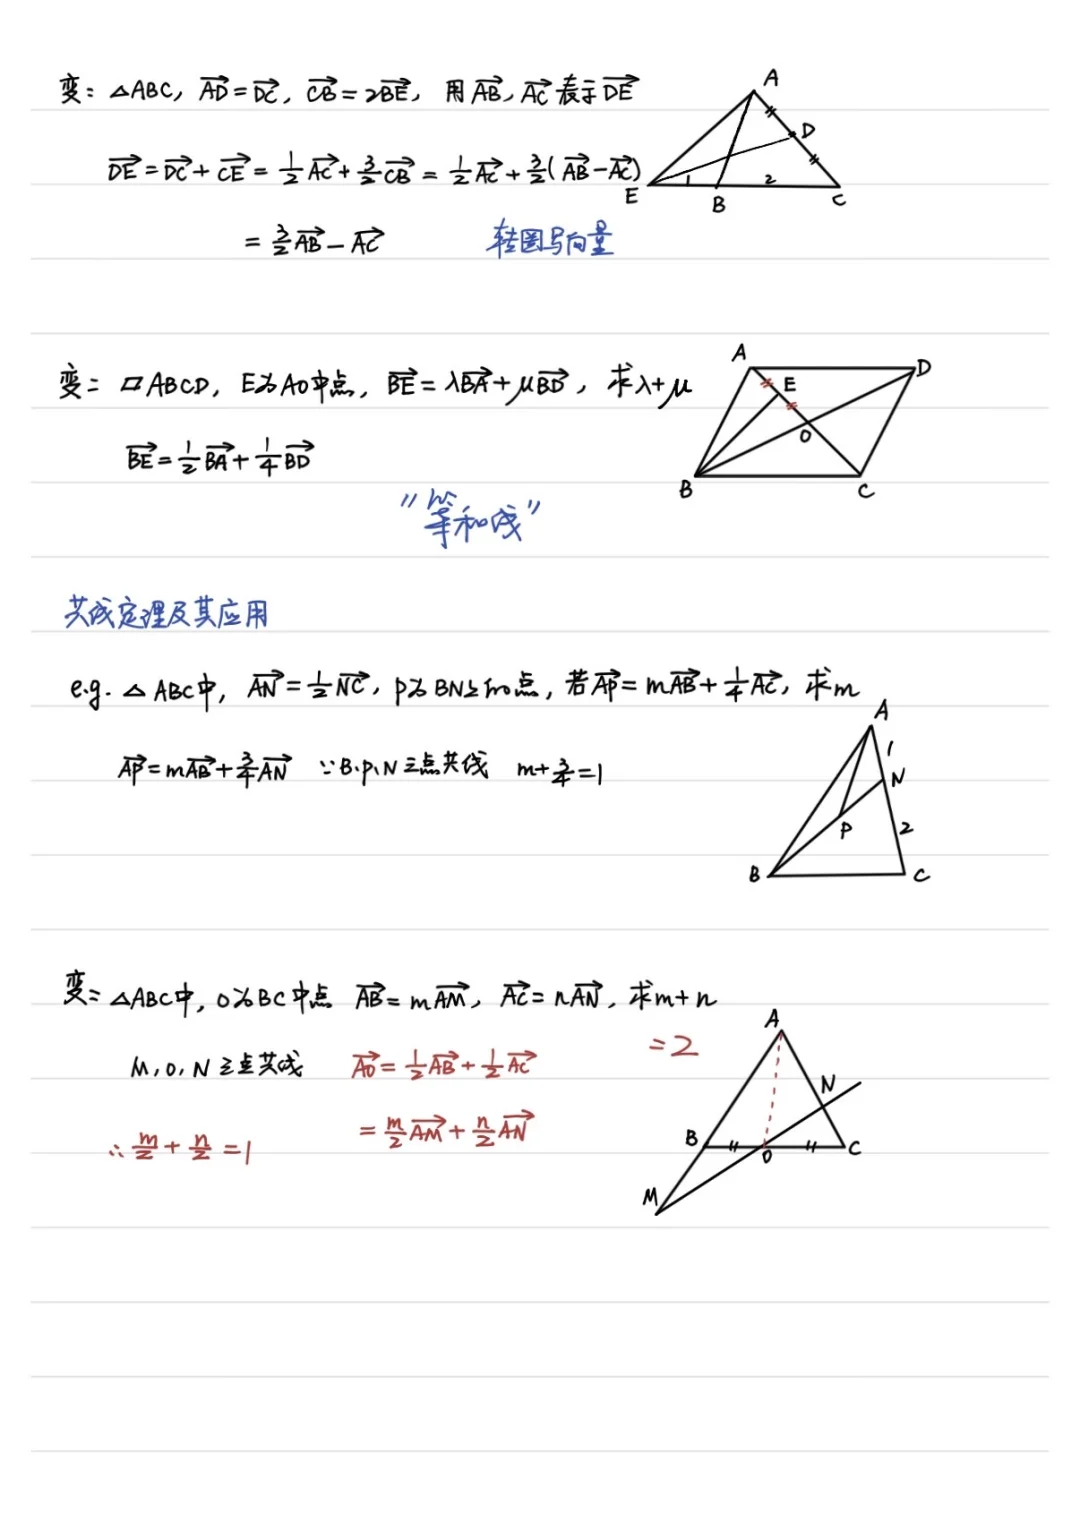 变：△ABC，$\overrightarrow{AD}=\overrightarrow{DC}$，$\overrightarrow{CB}=2\overrightarrow{BE}$，用$\overrightarrow{AB}$、$\overrightarrow{AC}$表示$\overrightarrow{DE}$
$\overrightarrow{DE}=\overrightarrow{DC}+\overrightarrow{CE}=\frac{1}{2}\overrightarrow{AC}+\frac{3}{2}\overrightarrow{CB}=\frac{1}{2}\overrightarrow{AC}+\frac{3}{2}(\overrightarrow{AB}-\overrightarrow{AC})$
$=\frac{3}{2}\overrightarrow{AB}-\overrightarrow{AC}$ 转圈写向量
A
D
E 1 B 2 C
变：▱ABCD，E为AO中点，$\overrightarrow{BE}=\lambda\overrightarrow{BA}+\mu\overrightarrow{BD}$，求λ+μ
$\overrightarrow{BE}=\frac{1}{2}\overrightarrow{BA}+\frac{1}{4}\overrightarrow{BD}$
"等和线"
A D
E
O
B C
共线定理及其应用
e.g. △ABC中，$\overrightarrow{AN}=\frac{1}{2}\overrightarrow{NC}$，P为BN上的点，若$\overrightarrow{AP}=m\overrightarrow{AB}+\frac{1}{4}\overrightarrow{AC}$，求m
$\overrightarrow{AP}=m\overrightarrow{AB}+\frac{3}{4}\overrightarrow{AN}$ ∵B、P、N三点共线 $m+\frac{3}{4}=1$
A
1
N
P 2
B C
变：△ABC中，O为BC中点 $\overrightarrow{AB}=m\overrightarrow{AM}$，$\overrightarrow{AC}=n\overrightarrow{AN}$，求m+n
=2
M，O，N三点共线 $\overrightarrow{AO}=\frac{1}{2}\overrightarrow{AB}+\frac{1}{2}\overrightarrow{AC}$
$=\frac{m}{2}\overrightarrow{AM}+\frac{n}{2}\overrightarrow{AN}$
∴$\frac{m}{2}+\frac{n}{2}=1$
A
N
B O C
M